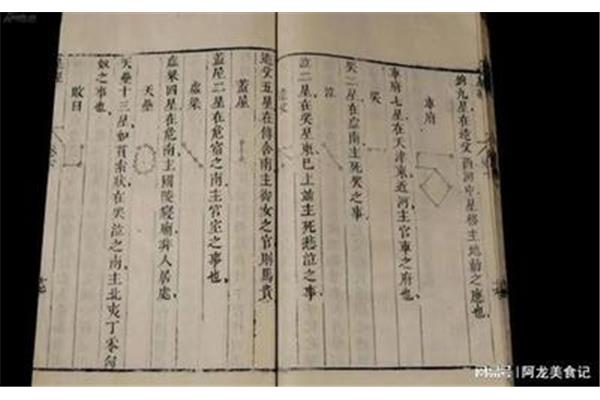 鈎九星在造父西河中星移主地動之應也
車府
車府七星在天津東近河主官車之府也
哭
哭二星在虛南主死哭之事
泣
泣二星在哭星東已上並主死悲泣之事
造父五星在傳舍南主御女之官則馬貴
蓋屋
蓋屋二星在危宿之南主官室之事也
虛梁
虛梁四星在危南主國陵寢廟非人居處
天壘
天壘十三星如貫索狀在哭泣之南主北夷丁零匈
奴之事也
敗臼
@阿龙美食记